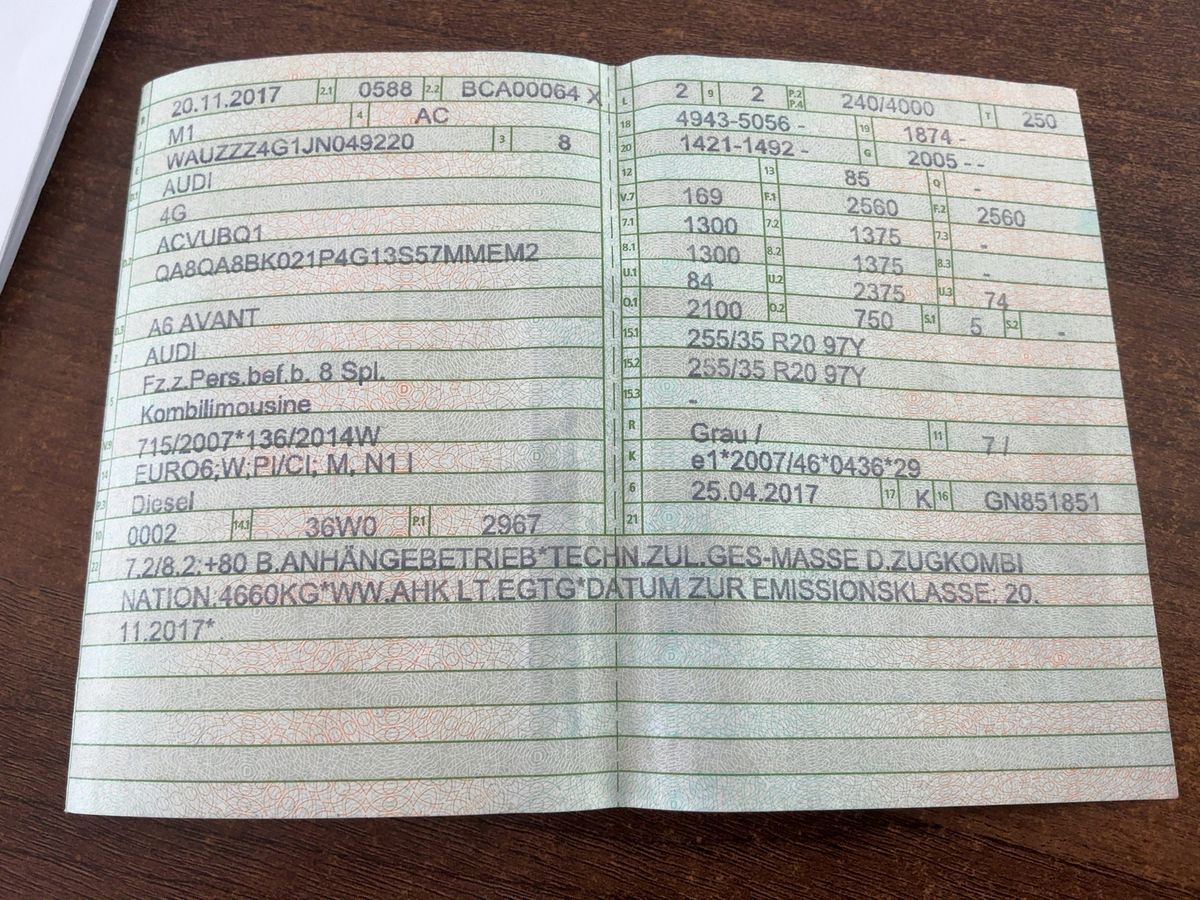 B 20.11.2017 2.1 0588 2.2 BCA00064 X
J M1 4 AC
E WAUZZZ4G1JN049220 3 8
D.1 AUDI
4G
ACVUBQ1
D.2 QA8QA8BK021P4G13S57MMEM2
D.3 A6 AVANT
2 AUDI
Fz.z.Pers.bef.b. 8 Spl.
5 Kombilimousine
V.9 715/2007*136/2014W
14 EURO6;W;PI/CI; M, N1 I
P.3 Diesel
10 0002 14.1 36W0 P.1 2967
L 2 9 2 P.2 P.4 240/4000 T 250
18 4943-5056 - 19 1874 -
20 1421-1492 - G 2005 - -
12 13 85 Q -
V.7 169 F.1 2560 F.2 2560
7.1 1300 7.2 1375 7.3 -
8.1 1300 8.2 1375 8.3 -
U.1 84 U.2 2375 U.3 74
O.1 2100 O.2 750 S.1 5 S.2 -
15.1 255/35 R20 97Y
15.2 255/35 R20 97Y
15.3 -
R Grau / 11 7 /
K e1*2007/46*0436*29
6 25.04.2017 17 K 16 GN851851
21
22 7.2/8.2:+80 B.ANHÄNGEBETRIEB*TECHN.ZUL.GES-MASSE D.ZUGKOMBI
NATION:4660KG*WW.AHK LT.EGTG*DATUM ZUR EMISSIONSKLASSE: 20.
11.2017*